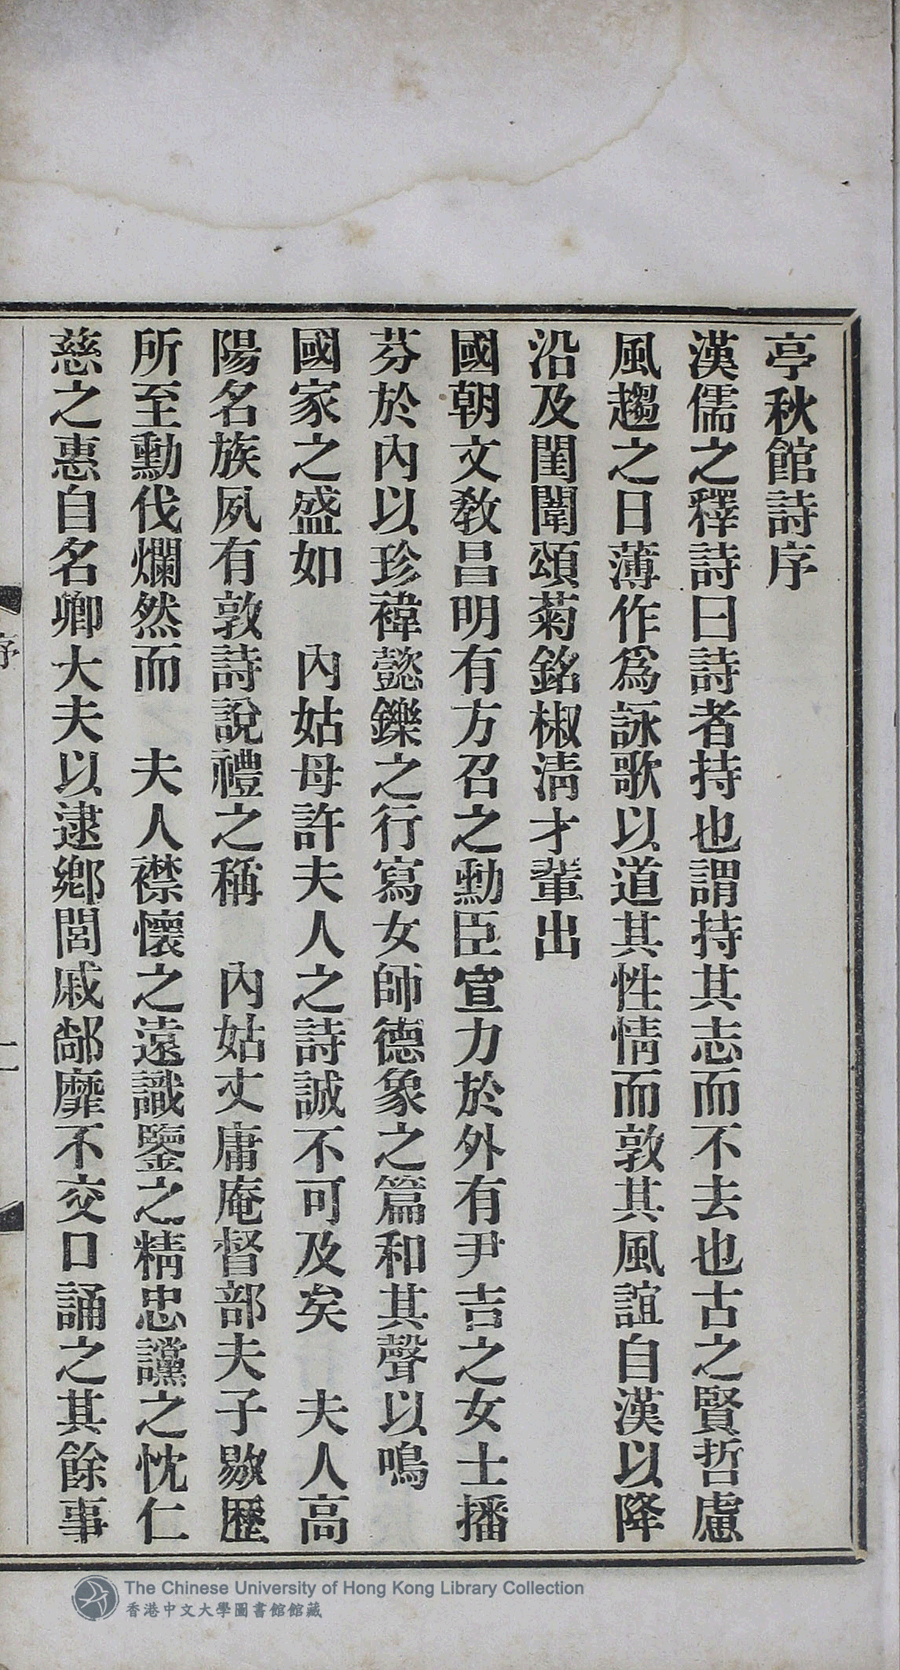 亭秋館詩序
漢儒之釋詩曰詩者持也謂持其志而不去也古之賢哲慮
風趨之日薄作爲詠歌以道其性情而敦其風誼自漢以降
沿及閨闈頌菊銘椒淸才輩出
國朝文敎昌明有方召之勳臣宣力於外有尹吉之女士播
芬於內以珍褘懿鑠之行寫女師德象之篇和其聲以鳴
國家之盛如　內姑母許夫人之詩誠不可及矣　夫人高
陽名族夙有敦詩說禮之稱　內姑丈庸庵督部夫子敭歷
所至勳伐爛然而　夫人襟懷之遠識鑒之精忠讜之忱仁
慈之惠自名卿大夫以逮鄕閭戚鄰靡不交口誦之其餘事
序
一
The Chinese University of Hong Kong Library Collection
香港中文大學圖書館館藏